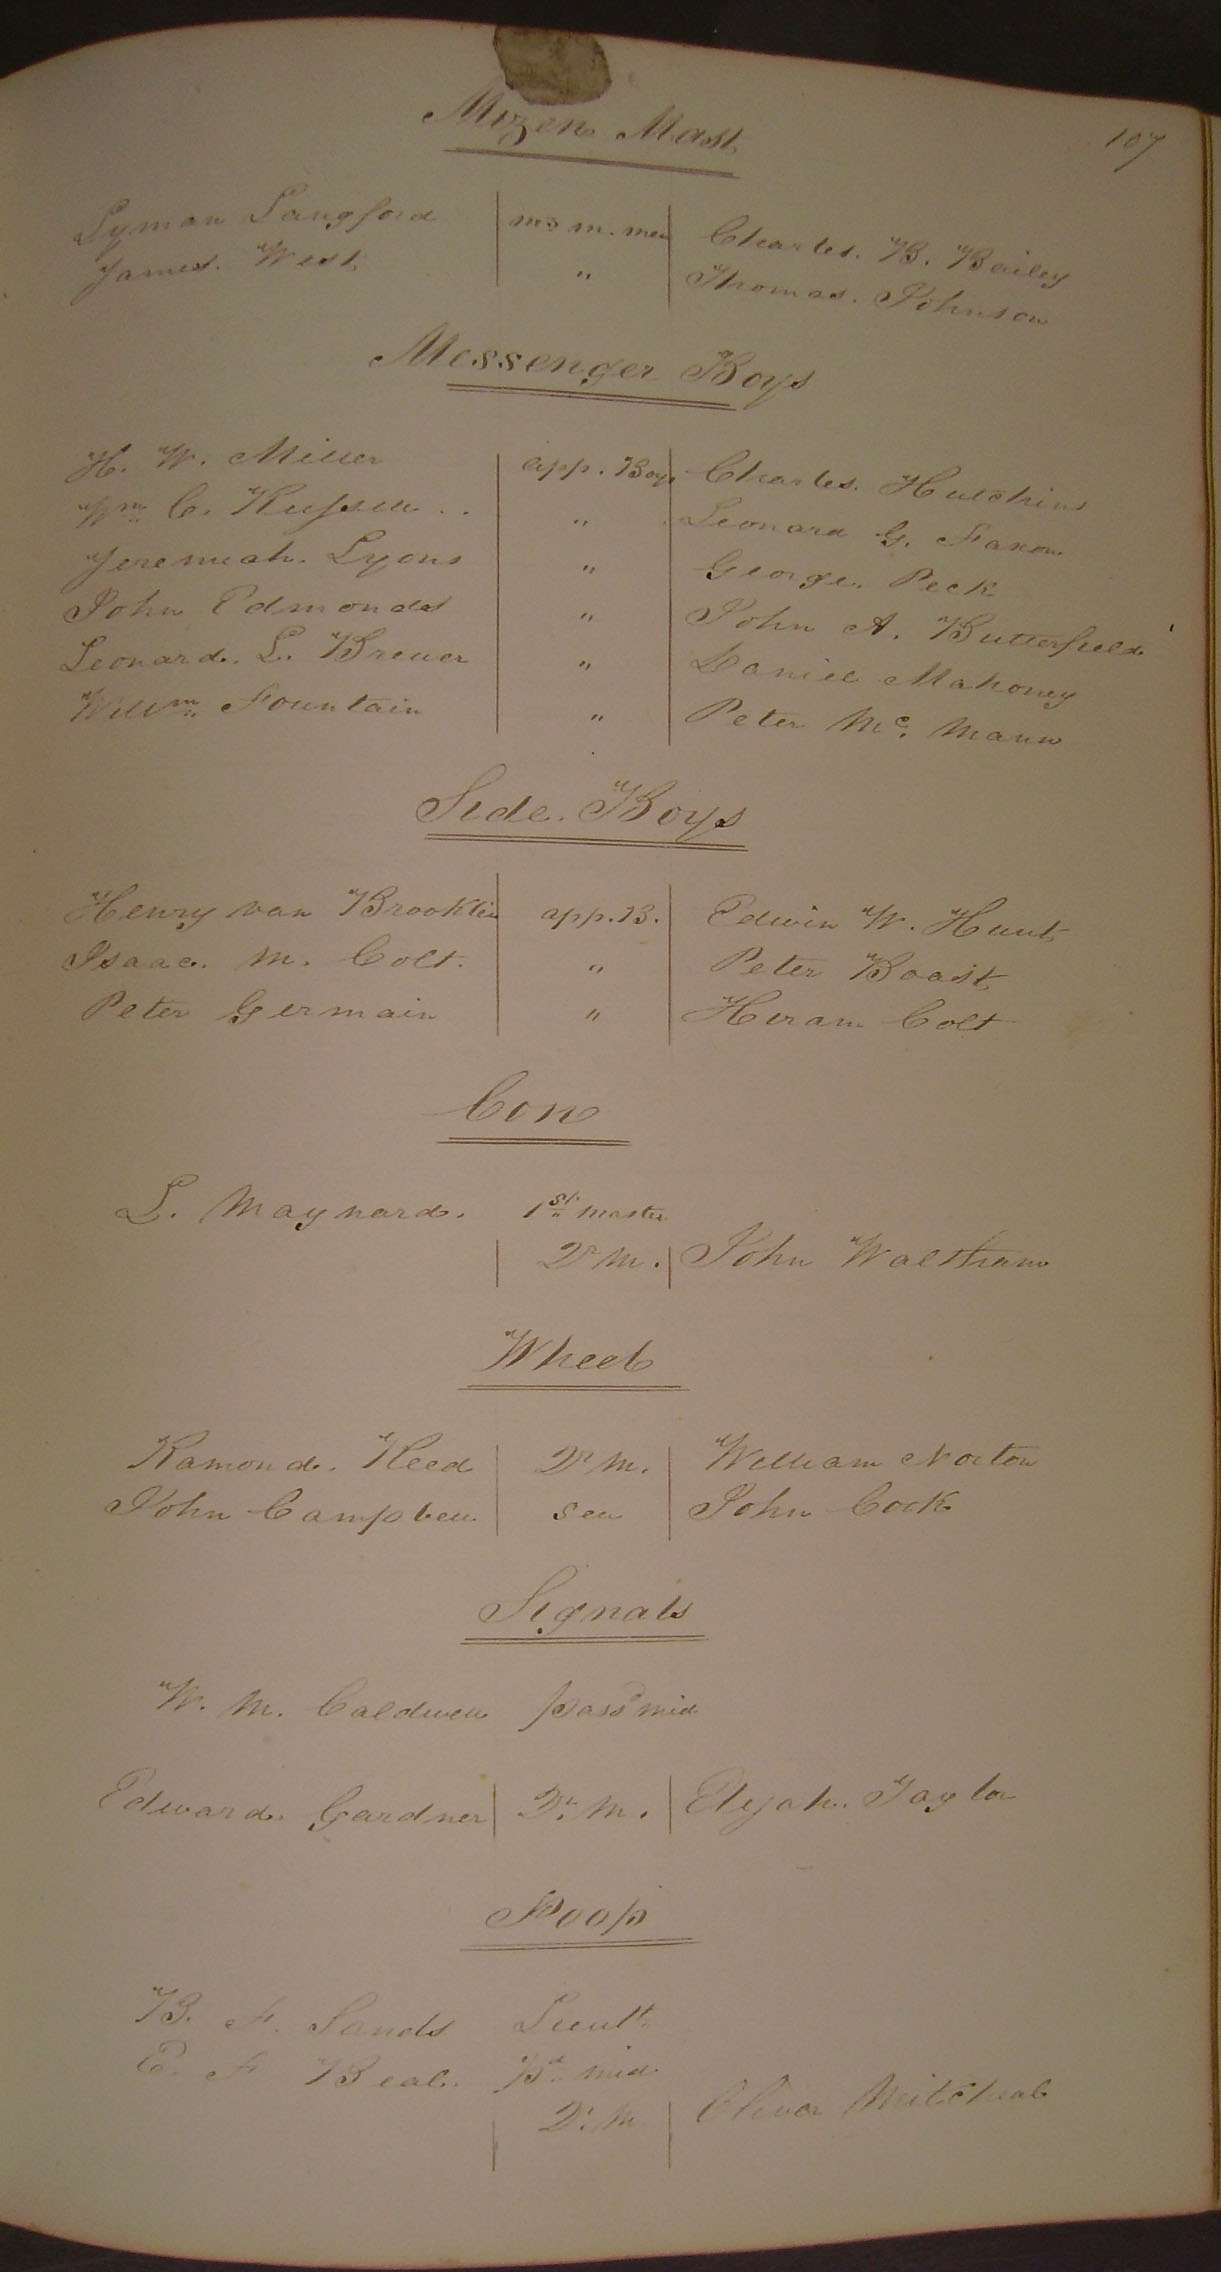 107
Mizen Mast
Lyman Langford mz m. men Charles. B. Bailey
James. West " Thomas. Johnson
Messenger Boys
H. W. Miller app. Boys Charles. Hutchins
Wm C. " Leonard G. Faxon
Jeremiah. Lyons " George. Peck
John Edmonds " John A. Butterfield
Leonard. L. Brewer " Daniel Mahoney
Willm Fountain " Peter Mc. Mann
Side. Boys
Henry van Brooklin app. B. Edwin W. Hunt
Isaac. M. Colt. " Peter Boast
Peter Germain " Hiram Colt
Con
L. Maynard. 1st master
Qr M. John Waltham
Wheel
Ramond. Reed Qr M. William Norton
John Campbell sea John Cook
Signals
W. M. Caldwell passd mid
Edward. Gardner Qr. M. Elijah. Taylor
Poop
B. F. Sands Lieult
E. F Beal. Pd mid
Qr. M Oliver Mitcheal